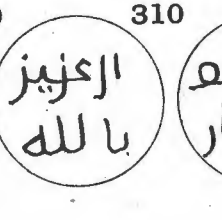 310
العزيز
بالله